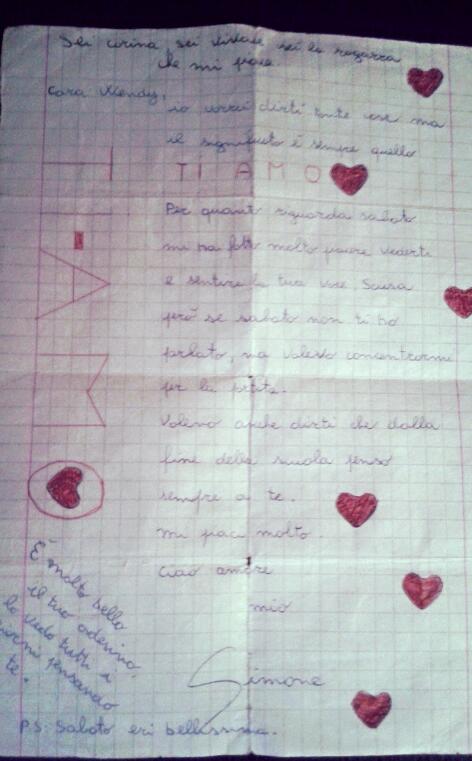 Sei carina, sei vivace sei la ragazza
che mi piace
Cara Wendy,
io vorrei dirti tante cose ma
il significato è sempre quello
TI AMO
Per quanto riguarda sabato
mi ha fatto molto piacere vederti
e sentire la tua voce Scusa
però se sabato non ti ho
parlato, ma volevo concentrarmi
per la partita.
Volevo anche dirti che dalla
fine della scuola penso
sempre a te.
mi piaci molto.
ciao amore
mio
Simone
TI AM
È molto bello
il tuo
lo vedo tutti i
giorni pensando
te.
P.S: Sabato eri bellissima.